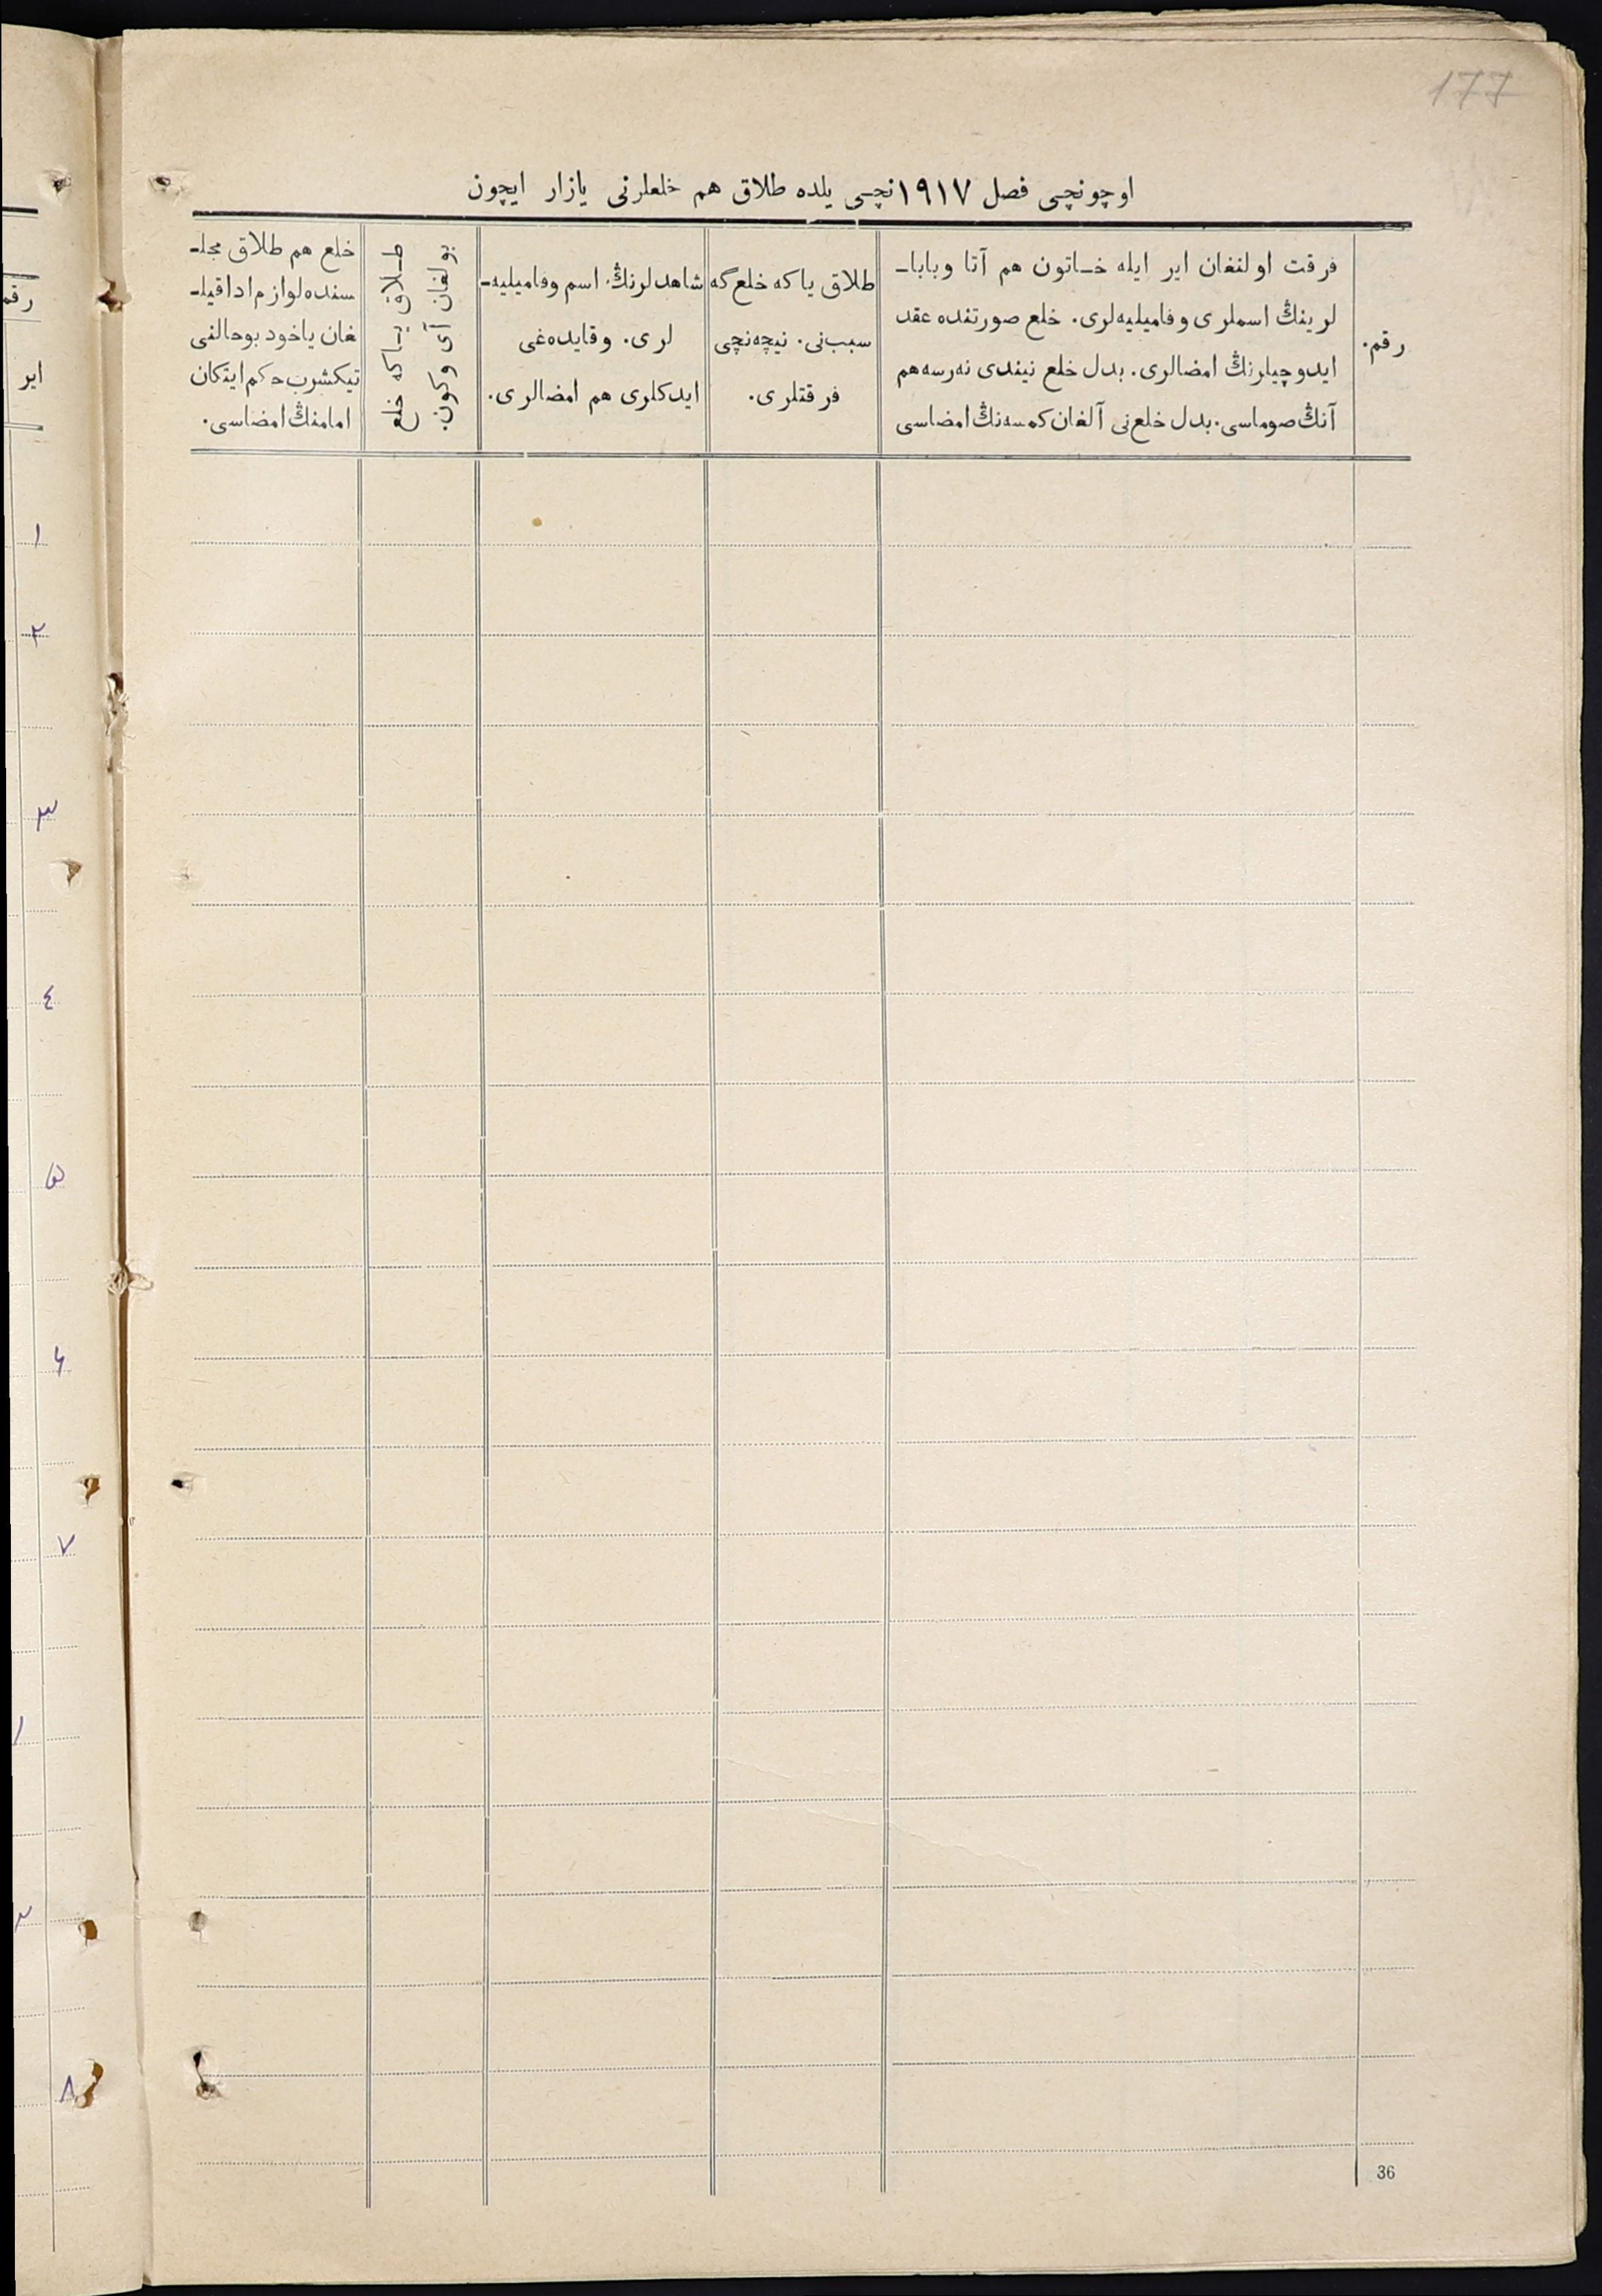 177
اوچونچی فصل ١٩١٧نچی یلده طلاق هم خلعلرنی یازار ایچون
رقم.
فرقت اولنغان ایر ایله خاتون هم آتا وبابا-
لرینڭ اسملری وفامیلیه‌لری. خلع صورتنده عقد
ایدوچیلرنڭ امضالری. بدل خلع نیندی نه‌رسه‌هم
آنڭ صوماسی. بدل خلع‌نی آلغان کمسه‌نڭ امضاسی
طلاق یا که خلع گه
سبب‌نی. نیچه‌نچی
فرقتلری.
شاهدلرنڭ اسم وفامیلیه-
لری. وقایده‌غی
ایدکلری هم امضالری.
طلاق یاکه خلع
بولغان آی وکون.
خلع هم طلاق مجلـ
سنده لوازم اداقیلـ
غان یاخود بوحالنی
تیکشرب حکم ایتکان
امامنڭ امضاسی.
36
رقم
ایر
١
٢
٣
٤
٥
٦
٧
١
٢
٨